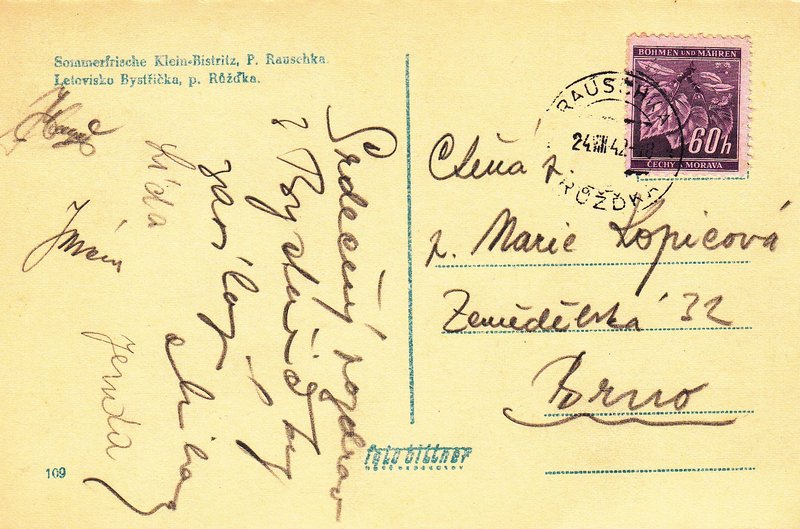 Sommerfrische Klein-Bistritz, P. Rauschka.
Letovisko Bystřička, p. Růžďka.
Srdečný pozdrav
z Bystřičky
zasílají
Lída
Jenda
109
foto bittner
BÖHMEN UND MÄHREN
60h
ČECHY A MORAVA
RAUSCHKA
24.VIII.42
RŮŽĎKA
Ctěná p.
p. Marie Lopicová
Zemědělská 32
Brno